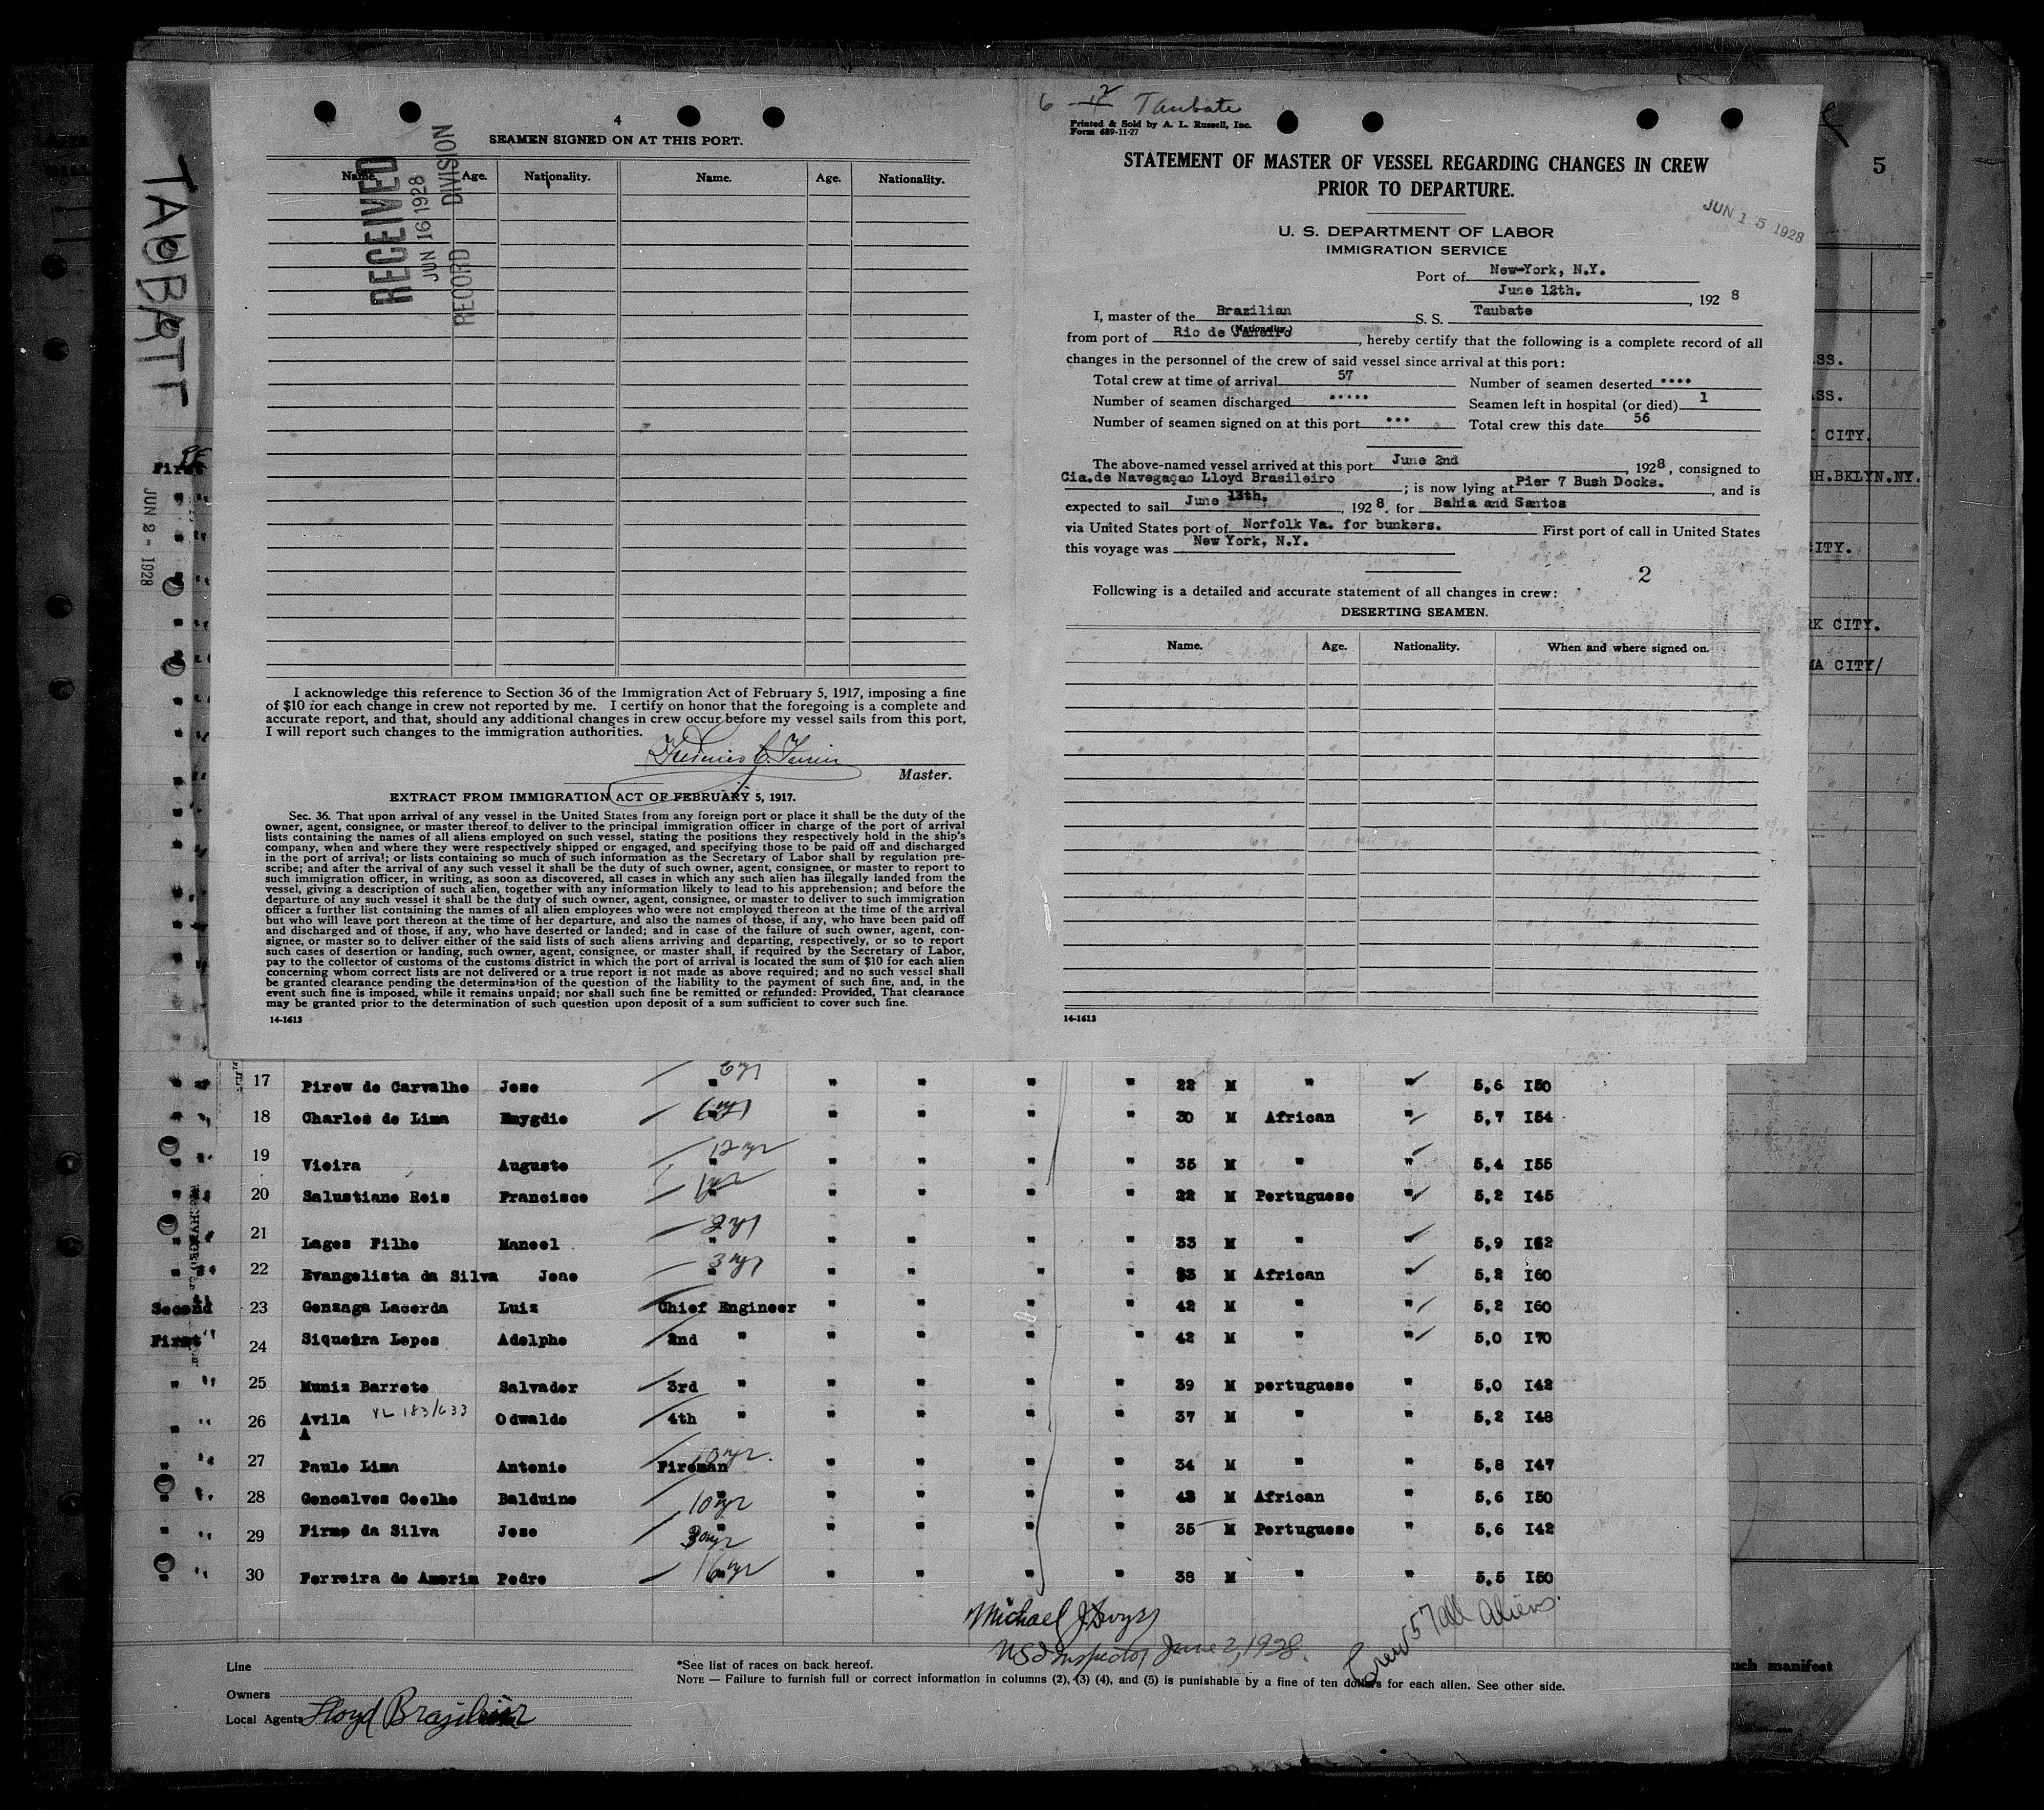 TAUBATE
JUN 2 - 1928
4
SEAMEN SIGNED ON AT THIS PORT.
Name. Age. Nationality. Name. Age. Nationality.
RECEIVED
JUN 16 1928
RECORD DIVISION
I acknowledge this reference to Section 36 of the Immigration Act of February 5, 1917, imposing a fine
of $10 for each change in crew not reported by me. I certify on honor that the foregoing is a complete and
accurate report, and that, should any additional changes in crew occur before my vessel sails from this port,
I will report such changes to the immigration authorities.
Master.
EXTRACT FROM IMMIGRATION ACT OF FEBRUARY 5, 1917.
Sec. 36. That upon arrival of any vessel in the United States from any foreign port or place it shall be the duty of the
owner, agent, consignee, or master thereof to deliver to the principal immigration officer in charge of the port of arrival
lists containing the names of all aliens employed on such vessel, stating the positions they respectively hold in the ship's
company, when and where they were respectively shipped or engaged, and specifying those to be paid off and discharged
in the port of arrival; or lists containing so much of such information as the Secretary of Labor shall by regulation pre-
scribe; and after the arrival of any such vessel it shall be the duty of such owner, agent, consignee, or master to report to
such immigration officer, in writing, as soon as discovered, all cases in which any such alien has illegally landed from the
vessel, giving a description of such alien, together with any information likely to lead to his apprehension; and before the
departure of any such vessel it shall be the duty of such owner, agent, consignee, or master to deliver to such immigration
officer a further list containing the names of all alien employees who were not employed thereon at the time of the arrival
but who will leave port thereon at the time of her departure, and also the names of those, if any, who have been paid off
and discharged and of those, if any, who have deserted or landed; and in case of the failure of such owner, agent, con-
signee, or master so to deliver either of the said lists of such aliens arriving and departing, respectively, or so to report
such cases of desertion or landing, such owner, agent, consignee, or master shall, if required by the Secretary of Labor,
pay to the collector of customs of the customs district in which the port of arrival is located the sum of $10 for each alien
concerning whom correct lists are not delivered or a true report is not made as above required; and no such vessel shall
be granted clearance pending the determination of the question of the liability to the payment of such fine, and, in the
event such fine is imposed, while it remains unpaid; nor shall such fine be remitted or refunded: Provided, That clearance
may be granted prior to the determination of such question upon deposit of a sum sufficient to cover such fine.
14-1613
6 2 Taubate
Printed & Sold by A. L. Russell, Inc.
Form 689-11-27
STATEMENT OF MASTER OF VESSEL REGARDING CHANGES IN CREW
PRIOR TO DEPARTURE.
JUN 15 1928
U. S. DEPARTMENT OF LABOR
IMMIGRATION SERVICE
Port of New-York, N.Y.
June 12th. , 192 8
I, master of the Brazilian S. S. Taubate
(Nationality.)
from port of Rio de Janeiro , hereby certify that the following is a complete record of all
changes in the personnel of the crew of said vessel since arrival at this port:
Total crew at time of arrival 57 Number of seamen deserted ••••
Number of seamen discharged ••••• Seamen left in hospital (or died) 1
Number of seamen signed on at this port ••• Total crew this date 56
The above-named vessel arrived at this port June 2nd , 1928, consigned to
Cia.de Navegaçao Lloyd Brasileiro ; is now lying at Pier 7 Bush Docks. , and is
expected to sail June 13th. , 192 8. for Bahia and Santos
via United States port of Norfolk Va. for bunkers. First port of call in United States
this voyage was New York, N.Y.
2
Following is a detailed and accurate statement of all changes in crew:
DESERTING SEAMEN.
Name. Age. Nationality. When and where signed on.
14-1613
5
ASS.
ASS.
CITY.
H.BKLYN.NY.
CITY.
RK CITY.
MA CITY/
First
17 Pirew de Carvalho Jose 6 yr " " " " " 22 M " " 5,6 I50
18 Charles de Lima Emygdio " " " " " 30 M African " 5,7 I54
19 Vieira Augusto 12 yr " " " " " 35 M " " 5,4 I55
20 Salustiano Reis Francisco " " " " " 22 M Portuguese " 5,2 I45
21 Lages Filho Manoel 2 yr " " " " " 33 M " " 5,9 I62
22 Evangelista da Silva Joao 3 yr " " " " " 33 M African " 5,2 I60
Second 23 Gonzaga Lacerda Luiz Chief Engineer " " " " 42 M " " 5,2 I60
First " 24 Siqueira Lopes Adolpho 2nd " " " " " 42 M " " 5,0 I70
" " 25 Muniz Barreto Salvador 3rd " " " " " 39 M portuguese " 5,0 I42
" " 26 Avila VL 183/633 Odwaldo 4th " " " " " 37 M " " 5,2 I48
A
" " 27 Paulo Lima Antonio Fireman " " " " 34 M " " 5,8 I47
" " 28 Goncalves Coelho Balduino " 10 yr " " " " 43 M African " 5,6 I50
" " 29 Firmo da Silva Jose " " " " " 35 M Portuguese " 5,6 I42
" " 30 Ferreira de Amorim Pedro " 16 yr " " " " 38 M " " 5,5 I50
Michael J.
US Inspector June 2, 1928.
Crew 57 all aliens.
Line
Owners
Local Agents Lloyd Brazilier
*See list of races on back hereof.
NOTE — Failure to furnish full or correct information in columns (2), (3) (4), and (5) is punishable by a fine of ten dollars for each alien. See other side.
such manifest